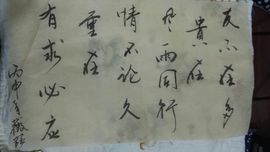 友不在多
貴在
风雨同行
情不论久
重在
有求必应
丙申